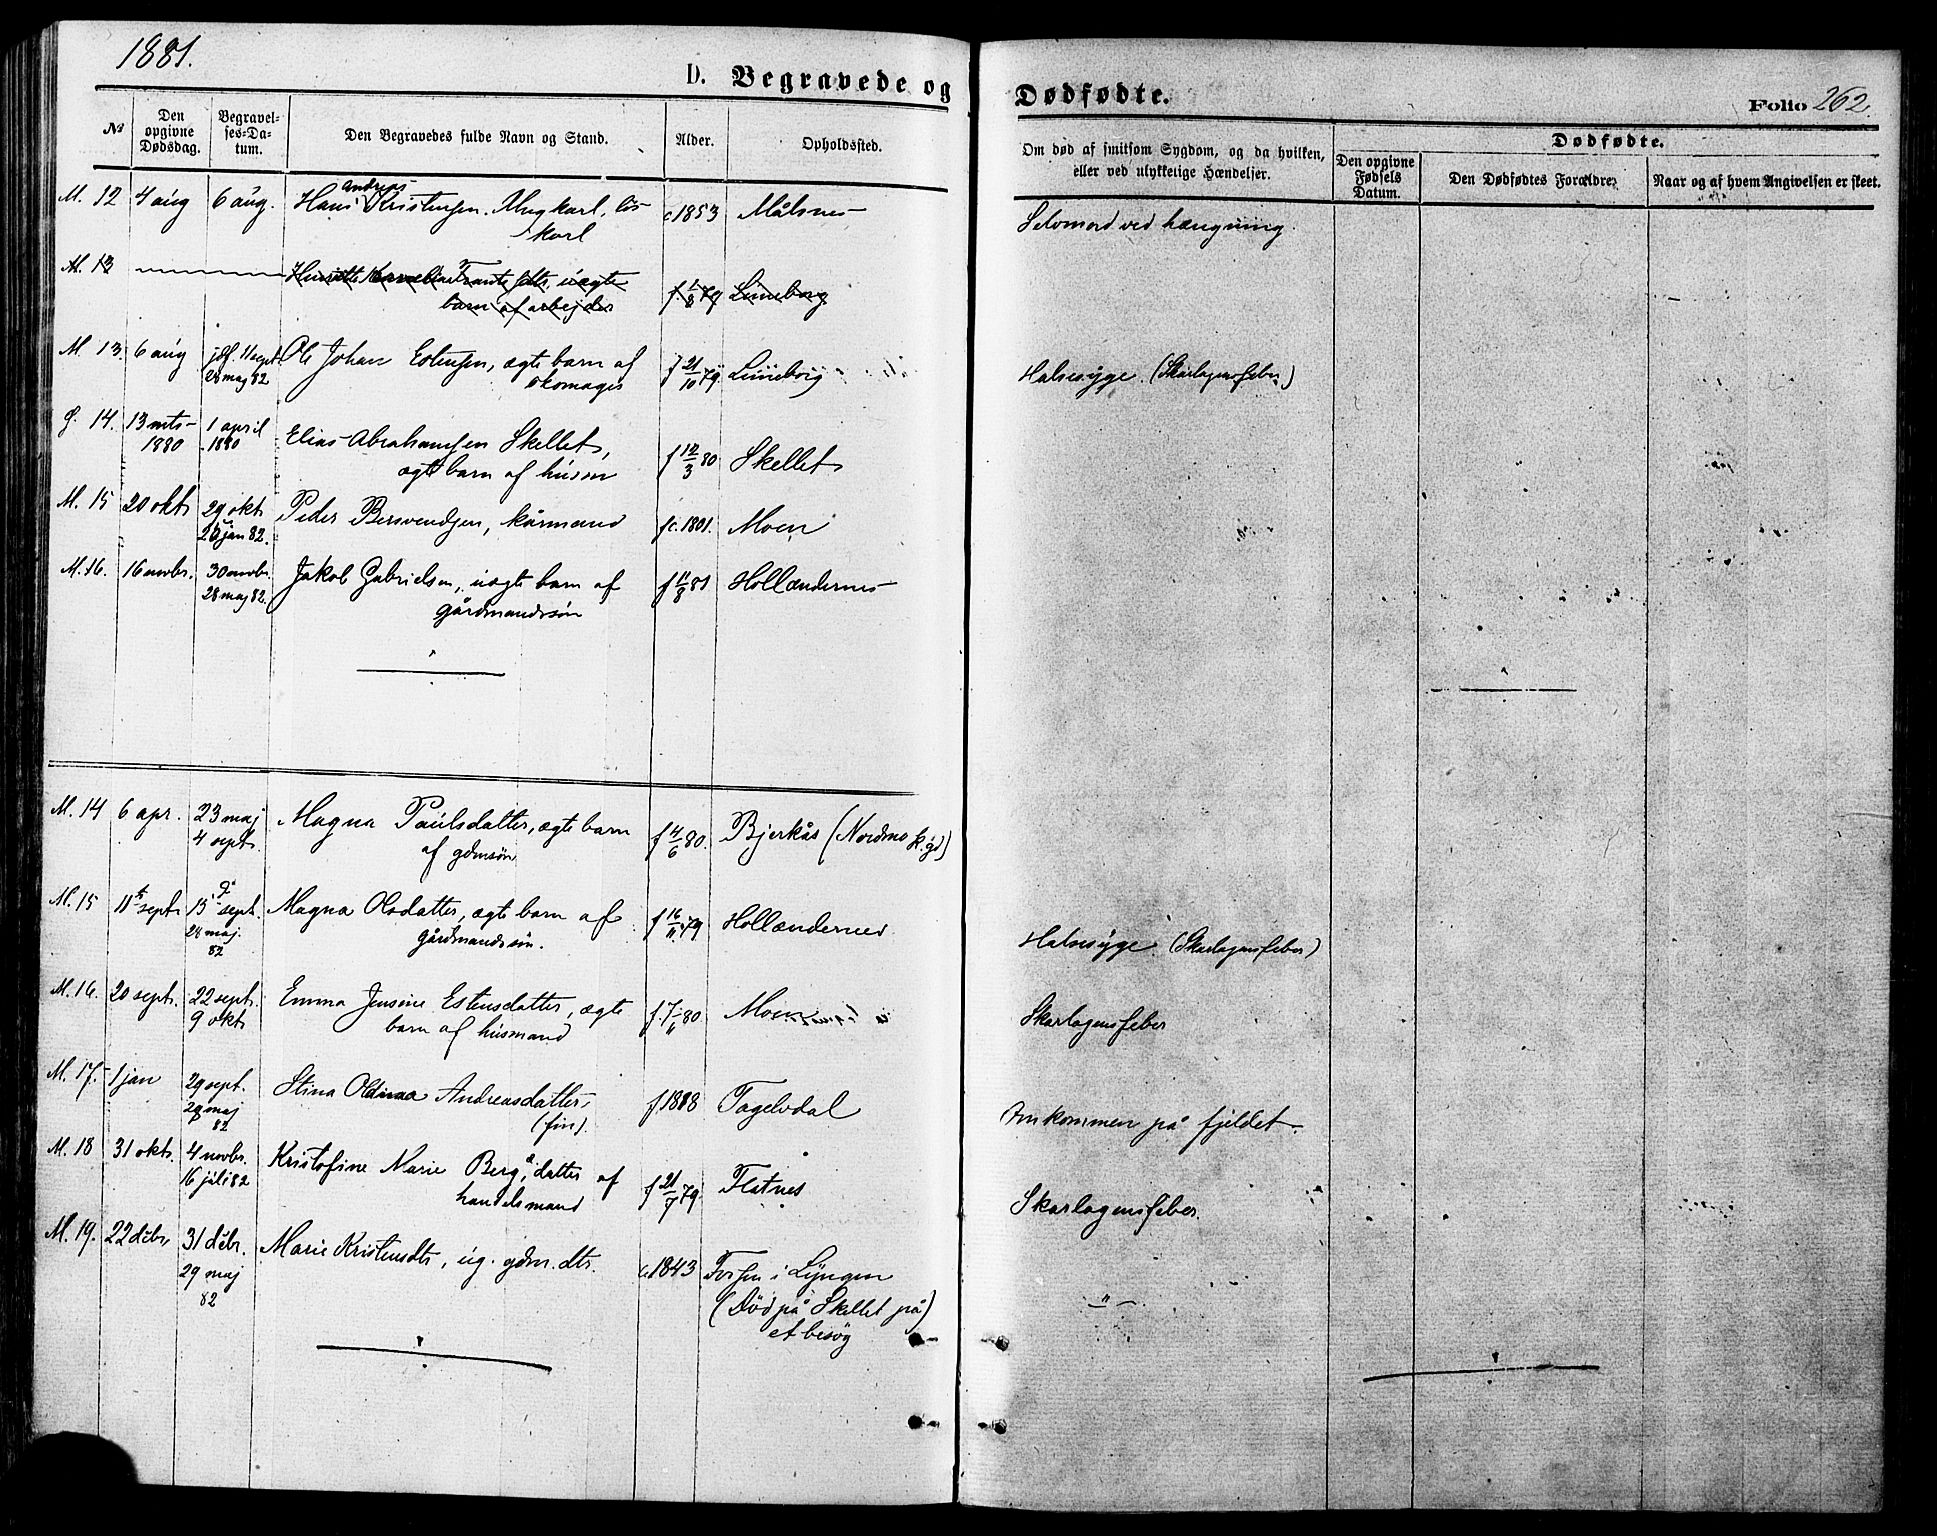 1881.
D. Begravede og Dødfødte.
Folio 262.
№
Den opgivne Dødsdag.
Begravelses-Datum.
Den Begravedes fulde Navn og Stand.
Alder.
Opholdssted.
Om død af smitsom Sygdom, og da hvilken,
eller ved ulykkelige Hændelser.
Dødfødte.
Den opgivne Fødsels Datum.
Den Dødfødtes Forældre.
Naar og af hvem Angivelsen er skeet.
M. 12 4 aug 6 aug. Hans Andreas Kristensen. Ungkarl, lis- c 1853 Målsnes Selvmord ved hængning.
karl
M. 13 barn af arbejder f. 1/8 79 Luneborg
M. 13. 6 aug jdf. 11 sept. Ole Johan Estensen, ægte barn af f 21/10 79 Luneborg Halsesyge. (Skarlagensfeber)
28 maj 82 skomager
G. 14. 13 mts 1 april Elias Abrahamsen Skellet, f 12/3 80 Skellet
1880 1880 ægte barn af husm
M. 15 20 okt 29 okt Peder Bersvendsen, kårmand f c. 1801. Moen
jan 82.
M. 16. 16 novbr. 30 novbr. Jakob Gabrielsen, uægte barn af f 11/8 81 Hollændernes
28 maj 82. gårdmandssøn
M. 14 6 apr. 23 maj Magna Paulsdatter, ægte barn f 4/6 80. Bjerkås (Nordmo k.gd)
4 sept. af gdmsøn
M. 15 11 sept 15 sept. Magna Olsdatter, ægte barn af f 16/11 79 Hollændernes Halsesyge. (Skarlagensfeber)
28 maj. gårdmandssøn.
82
M. 16. 20 sept. 22 sept. Emma Jensine Estensdatter, ægte f. 7/6 80. Moen Skarlagensfeber
9 okt barn af husmand
M. 17. 1 jan 29 sept. Stina Oldina Andreasdatter, f 1818 Tagelvdal Omkommen på fjeldet.
29 maj (fin).
82
M. 18 31 okt. 4 novbr. Kristofine Marie Berg, datter af f 21/7 79. Flatnes Skarlagensfeber.
16 juli 82 handelsmand
M. 19. 22 debr. 31 debr. Marie Kristensdtr, ug. gdm. dtr. c. 1843 Forsen i Lyngen — " —
29 maj (Død på Skellet på)
82 et besøg